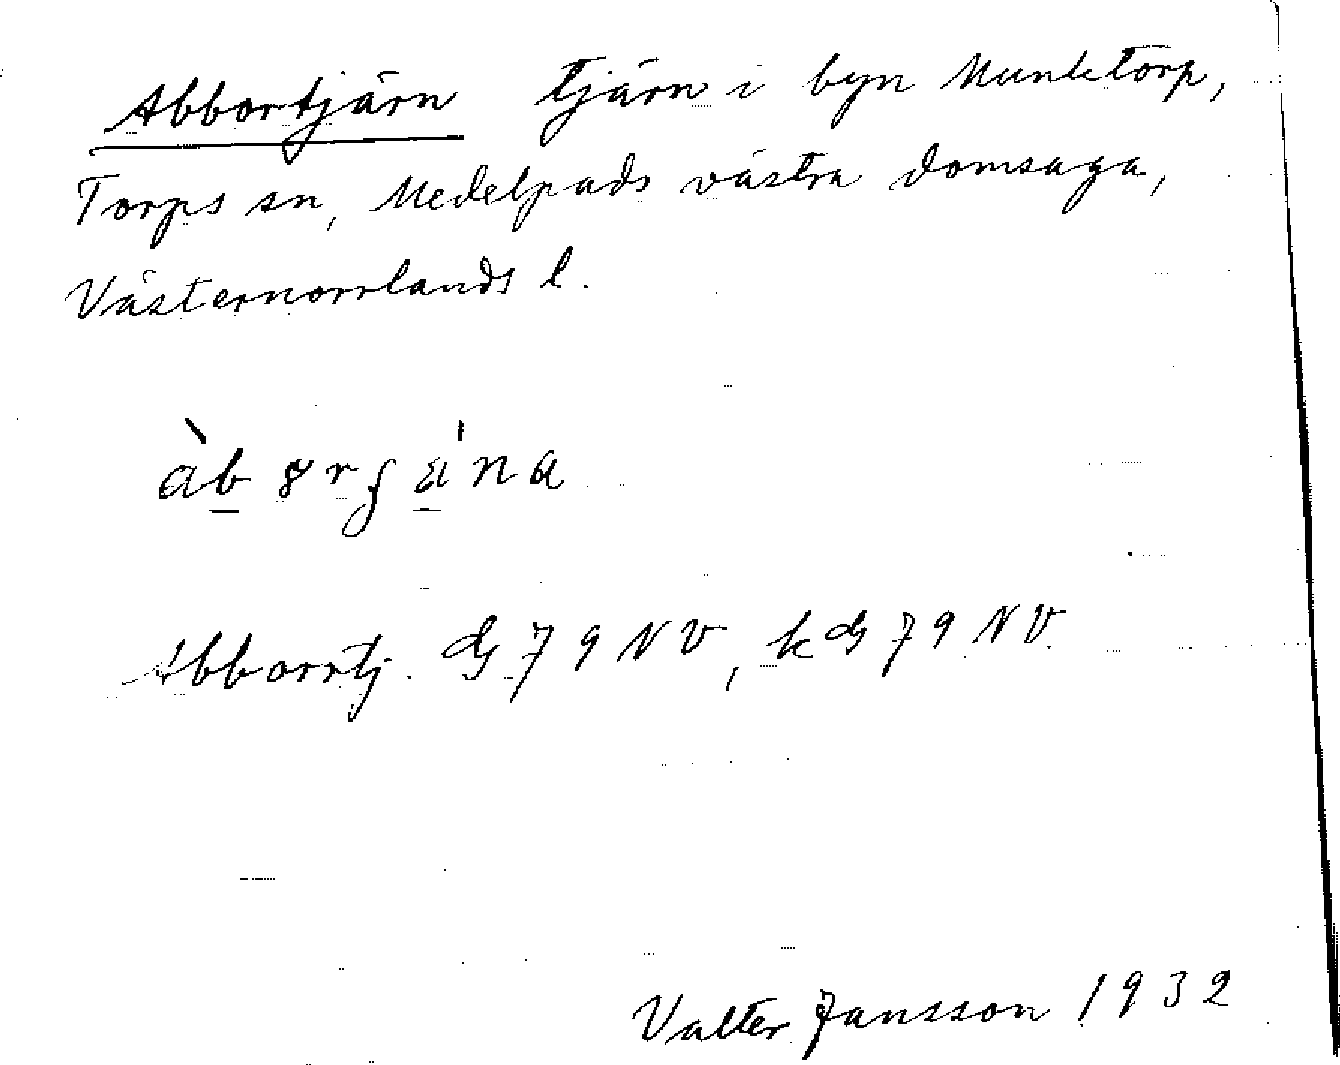 Abbortjärn tjärn i byn Munktorp,
Torps sn, Medelpads västra domsaga,
Västernorrlands l.
Abborrtj. G 79 NV, kG 79 NV
Valter Jansson 1932